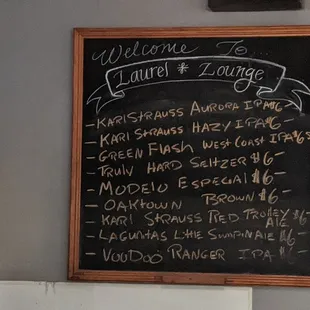 Welcome To...
Laurel * Lounge
- Karl Strauss Aurora IPA $6 -
- Karl Strauss Hazy IPA $6 -
- Green Flash West Coast IPA $6
- Truly Hard Seltzer $6 -
- Modelo Especial $6 -
- Oaktown Brown $6 -
- Karl Strauss Red Trolley Ale $6 -
- Lagunitas Little Sumpin Ale $6 -
- VooDoo Ranger IPA $6 -